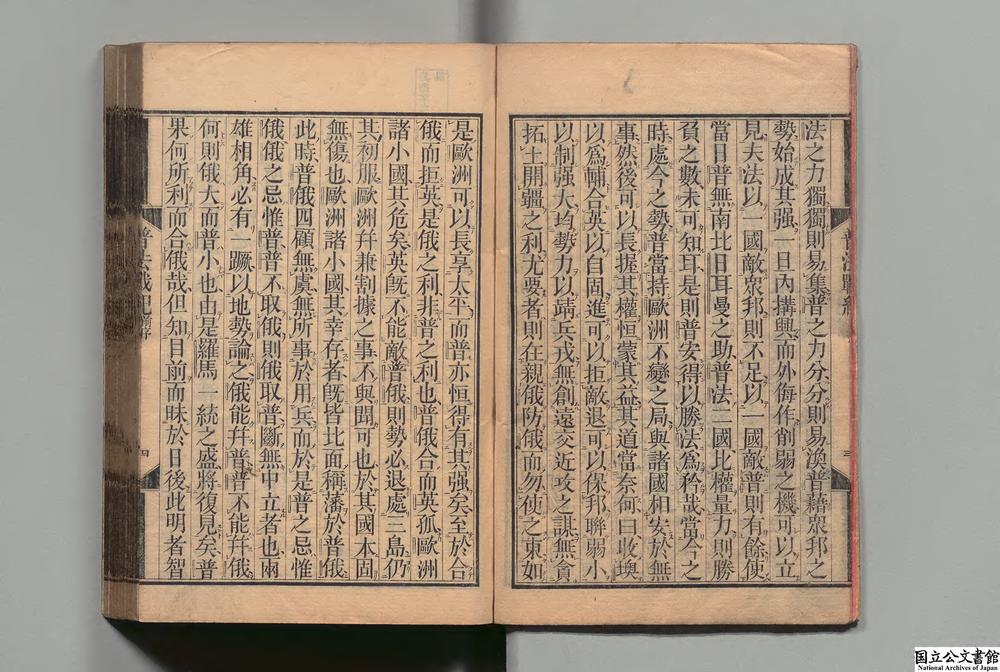 法之力獨獨則易集普之力分分則易渙普藉眾邦之
勢始成其强一旦內搆興而外侮作削弱之機可以立
見夫法以一國敵眾邦則不足以一國敵普則有餘使
當日普無南北日耳曼之助普法二國比權量力則勝
負之數未可知耳是則普安得以勝法爲矜哉當今之
時處今之勢普當持歐洲不變之局與諸國相安於無
事然後可以長握其權恒蒙其益其道當奈何曰收墺
以爲輔合英以自固進可以拒敵退可以保邦聯弱小
以制强大均勢力以靖兵戎無創遠交近攻之謀無貪
拓土開疆之利尤要者則在親俄防俄而勿使之東如
是歐洲可以長享太平而普亦恒得有其强矣至於合
俄而拒英是俄之利非普之利也普俄合而英孤歐洲
諸小國其危矣英旣不能敵普俄則勢必退處三島仍
其初服歐洲幷兼割據之事不與聞可也於其國本固
無傷也歐洲諸小國其幸存者旣皆北面稱藩於普俄
此時普俄四顧無虞無所事於用兵而於是普之忌惟
俄俄之忌惟普普不取俄則俄取普斷無中立者也兩
雄相角必有一蹶以地勢論之俄能幷普普不能幷俄
何則俄大而普小也由是羅馬一統之盛將復見矣普
果何所利而合俄哉但知目前而昧於日後此明者智
普法戰紀
三
普法戰紀
四
国立公文書館
National Archives of Japan